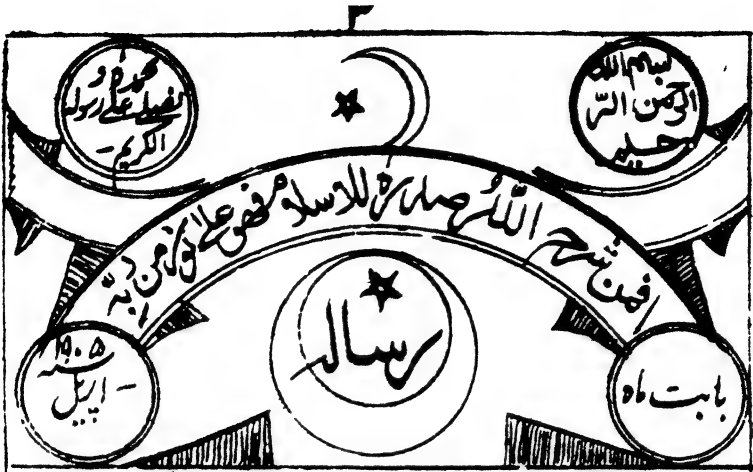 ۳
بسم الله
الرحمن الر
حيم
نحمده و
نصلے علے رسوله
الكريم-
افمن شرح الله صدره للاسلام فهو علے نور من ربه
رسالہ
بابت ماه
اپریل
سنہ ۱۹۰۵